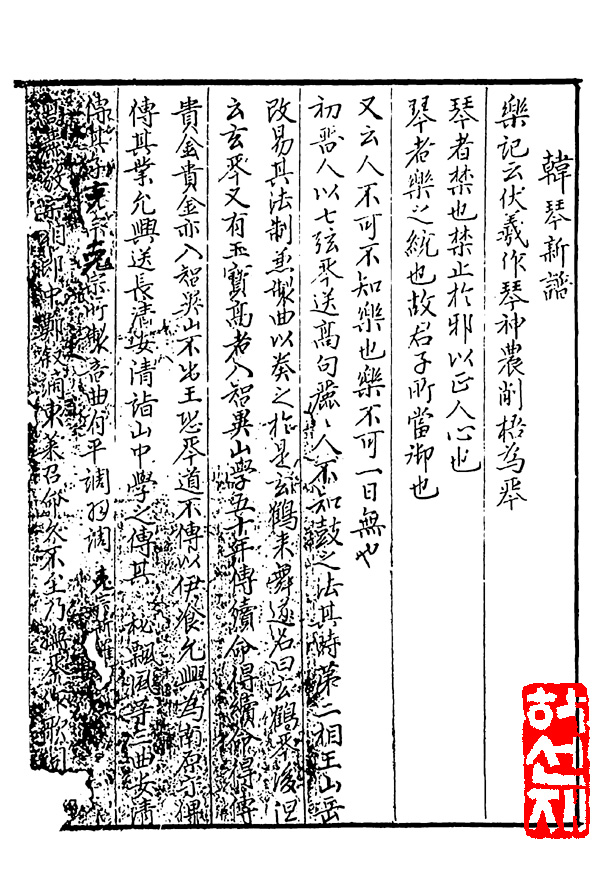 韓琴新譜
樂記云伏羲作琴神農削桐為琴
琴者禁也禁止於邪以正人心也
琴者樂之統也故君子所當御也
又云人不可不知樂也樂不可一日無也
初晉人以七弦琴送高句麗〻人不知鼓之法其時第二相王山岳
改易其法制兼製曲以奏之於是玄鶴来舞遂名曰玄鶴琴後但
云玄琴又有玉寶高者入智異山學五十年傳續命得續命得傳
貴金貴金亦入智異山不出王恐琴道不傳以伊飡允興為南原
傳其業允興送長清安清詣山中學之傳其 秘飄風等三曲安清
傳其子克宗克宗所製音曲有平調羽調 克宗
郎中鄭敍 東萊召命久不至乃撫琴 歌
허선재